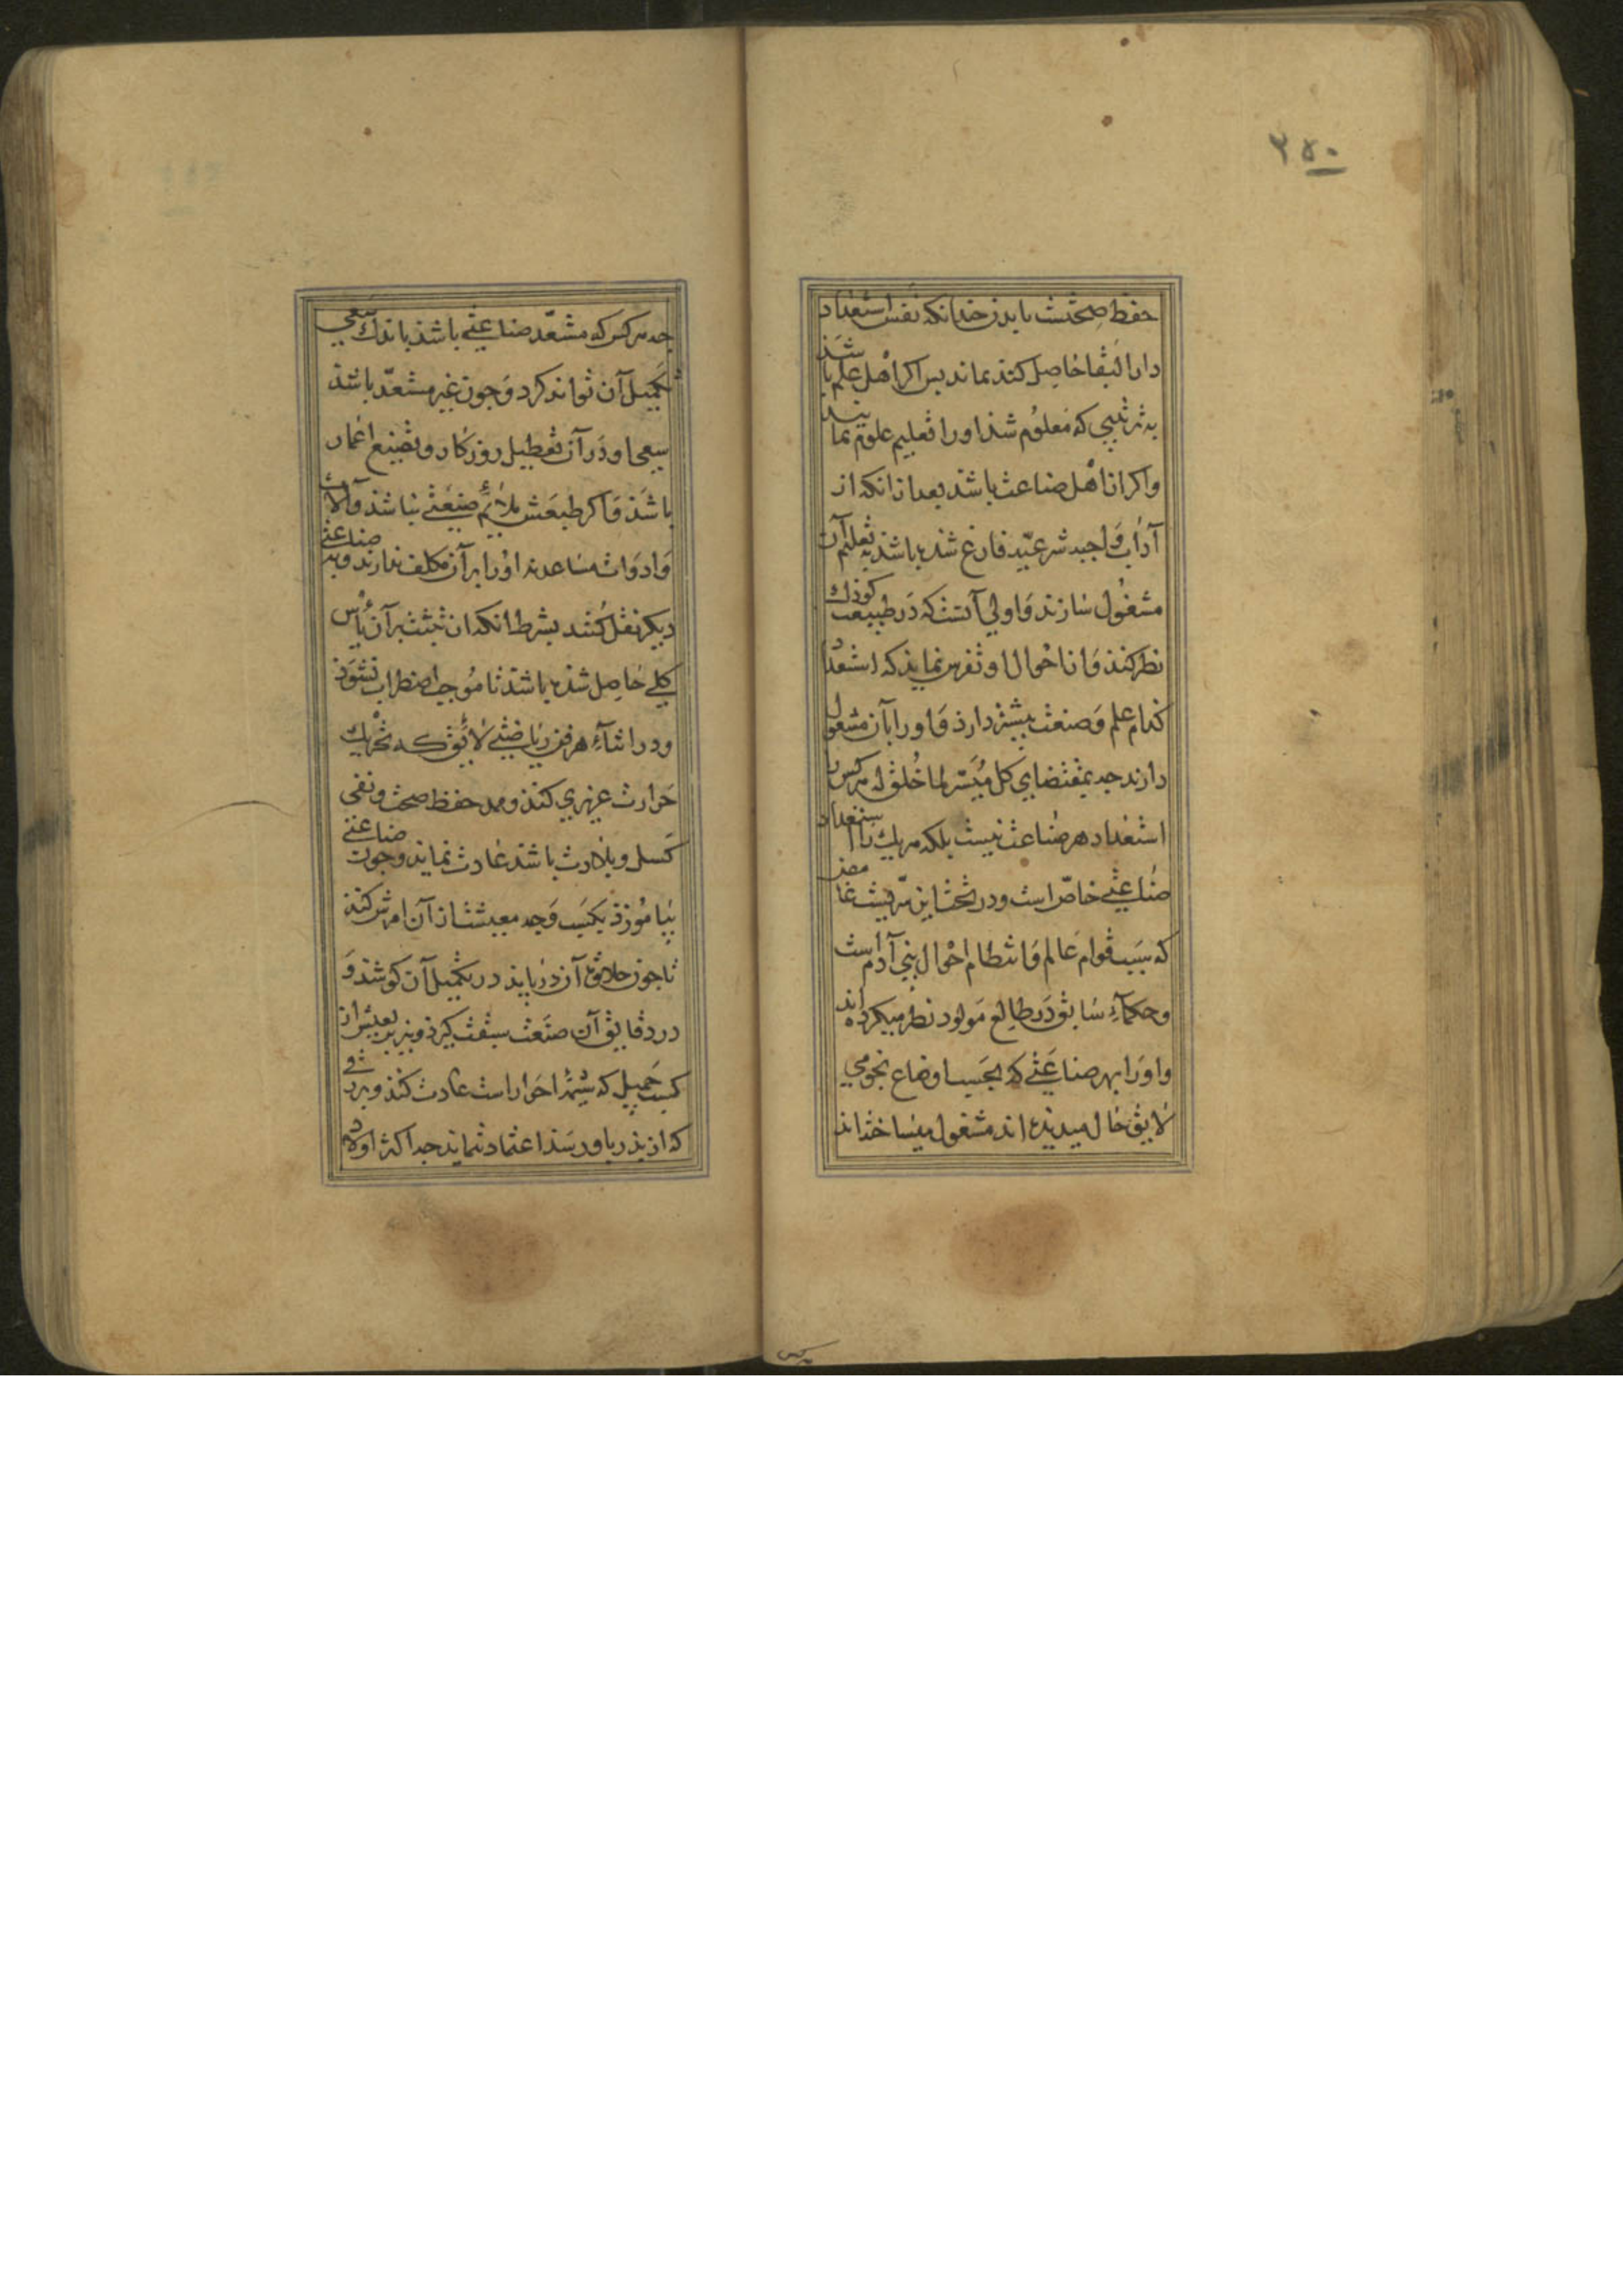 ۲۵۰
حفظ صحتش بايد چندانكه نفس استعداد
دار البقا حاصل كند بماند بس اكر اهل علم باشذ
به ترتيبي كه معلوم شذ او را تعليم علوم نمايند
واكر از اهل صناعت باشذ بعد از انكه از
آداب واجبه شرعيه فارغ شده باشذ به تعليم آن
مشغول سازند و اولي آنست كه در طبيعت كوذك
نظر كنند و از احوال او تفرس نمايند كه استعداد
كدام علم و صنعت بيشتر دارذ و او را بآن مشغول
دارند چه بمقتضاي كل ميسر لما خلق له هر كس را
استعداد هر صناعت نيست بلكه هر يك را استعداد
صناعتي خاص است و در تحت اين سريست غامض
كه سبب قوام عالم و انتظام احوال بني آدم است
وحكماء سابق در طالع مولود نظر ميكرده اند
واو را بهر صناعتي كه بحسب اوضاع نجومي
لايق حال ميديده اند مشغول ميساخته اند
چه هر كس كه مستعد صناعتي باشذ باندك سعي
تكميل آن تواند كرد و چون غير مستعد باشذ
سعي او در آن تعطيل روزكار و تضييع اعمار
باشذ و اكر طبعش ملائم صنعتي نباشذ و آلات
و ادوات مساعد نه او را بر آن مكلف ندارند و به صناعتي
ديكر نقل كنند بشرط انكه از تثبت بر آن يأس
كلي حاصل شذه باشذ تا موجب اضطراب نشوذ
ودر اثناء هر فن رياضتي لائق كه تحريك
حرارت غريزي كند و ممد حفظ صحت و نفي
كسل و بلادت باشذ عادت نمايند و چون صناعتي
بياموزذ بكسب وجه معيشت از آن امرش كنند
تا چون حلاوت آن دريابد در تكميل آن كوشد و
در دقايق آن صنعت سبقت كيرذ و نيز بر تعيش از
كسب جميل كه شيمه احرار است عادت كند و بر رزقي
كه از پذر باو رسذ اعتماد ننمايد چه اكثر اولاد